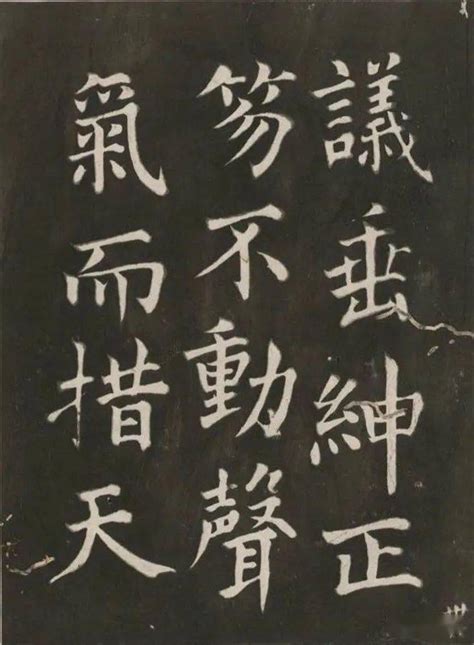 議垂紳正
笏不動聲
氣而措天